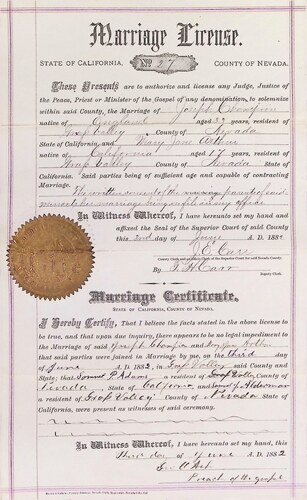 Marriage License.
STATE OF CALIFORNIA, No. 27 COUNTY OF NEVADA.
These Presents are to authorize and license any Judge, Justice of
the Peace, Priest or Minister of the Gospel of any denomination, to solemnize
within said County, the Marriage of Joseph Champion
native of England aged 27 years, resident of
Grass Valley County of Nevada
State of California, and Mary Jane
native of California aged 17 years, resident of
Grass Valley County of Nevada
State of California. Said parties being of sufficient age and capable of contracting
Marriage.
The written consent of the
marriage being on file in my office
In Witness Whereof, I have hereunto set my hand and
affixed the Seal of the Superior Court of said County
this 2nd day of June A. D. 1882
J. E. Carr
County Clerk and ex-officio Clerk of the Superior Court for said Nevada County.
By Carr
Deputy Clerk.
Marriage Certificate.
STATE OF CALIFORNIA, COUNTY OF NEVADA.
I Hereby Certify, That I believe the facts stated in the above license
to be true, and that upon due inquiry, there appears to be no legal impediment to the
Marriage of said Joseph Champion and
that said parties were joined in Marriage by me, on the third day
of June A. D. 1882, in Grass Valley said County and
State; that a resident of Grass Valley County of
Nevada State of California, and Alderman
a resident of Grass Valley County of Nevada State of
California, were present as witnesses of said ceremony.
In Witness Whereof, I have hereunto set my hand, this
third day of June A. D. 1882
Geo.
Preacher of the gospel